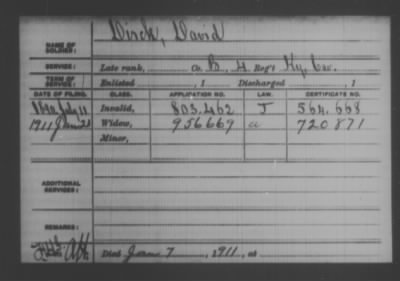 Dirck, David
NAME OF SOLDIER:
SERVICE: Late rank, Co. B, 4 Reg't Ky. Cav.
TERM OF SERVICE: Enlisted , 1 Discharged , 1
DATE OF FILING. CLASS. APPLICATION NO. LAW. CERTIFICATE NO.
July 11 Invalid, 803.462 J 564.668
1911 Jan 21 Widow, 956669 a 720871
Minor,
ADDITIONAL SERVICES:
REMARKS:
Died Jan 7, 1911, at